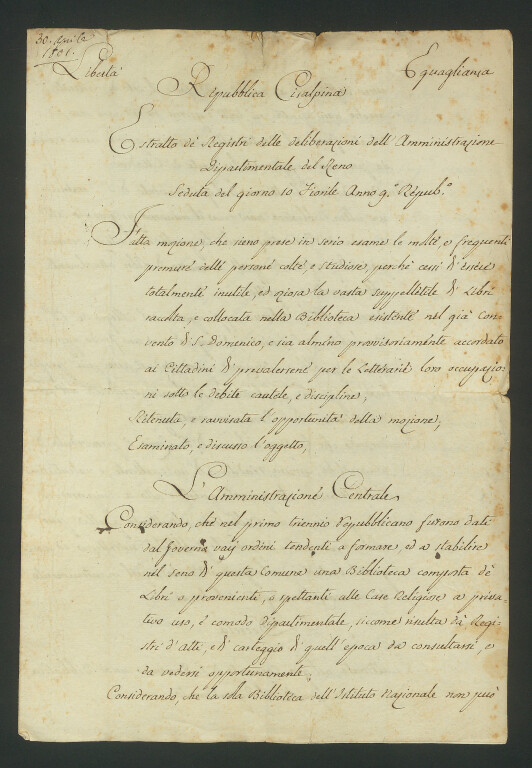 30. Aprile
1801.
Libertà
Eguaglianza
Repubblica Cisalpina
Estratto de' Registri delle deliberazioni dell'Amministrazione
Dipartimentale del Reno
Seduta del giorno 10 Fiorile Anno 9.º Répub.º
Fatta mozione, che sieno prese in serio esame le molte, e frequenti
premure delle persone colte, e studiose, perchè cessi d'essere
totalmente inutile, ed oziosa la vasta suppellettile di Libri
raccolta, e collocata nella Biblioteca esistente nel già Con-
vento di S. Domenico, e sia almeno provvisoriamente accordato
ai Cittadini di prevalersene per le Letterarie loro occupazio-
ni sotto le debite cautele, e discipline;
Ritenuta, e ravvisata l'opportunità della mozione;
Esaminato, e discusso l'oggetto,
L'Amministrazione Centrale
Considerando, che nel primo triennio Repubblicano furono dati
dal Governo varj ordini tendenti a formare, ed a stabilire
nel seno di questa Comune una Biblioteca composta de'
Libri o provenienti, o spettanti alle Case Religiose a priva-
tivo uso, e comodo dipartimentale, siccome risulta da' Regi-
stri d'Atti, e di carteggio di quell'epoca da consultarsi, e
da vedersi opportunamente;
Considerando, che la sola Biblioteca dell'Istituto Nazionale non può